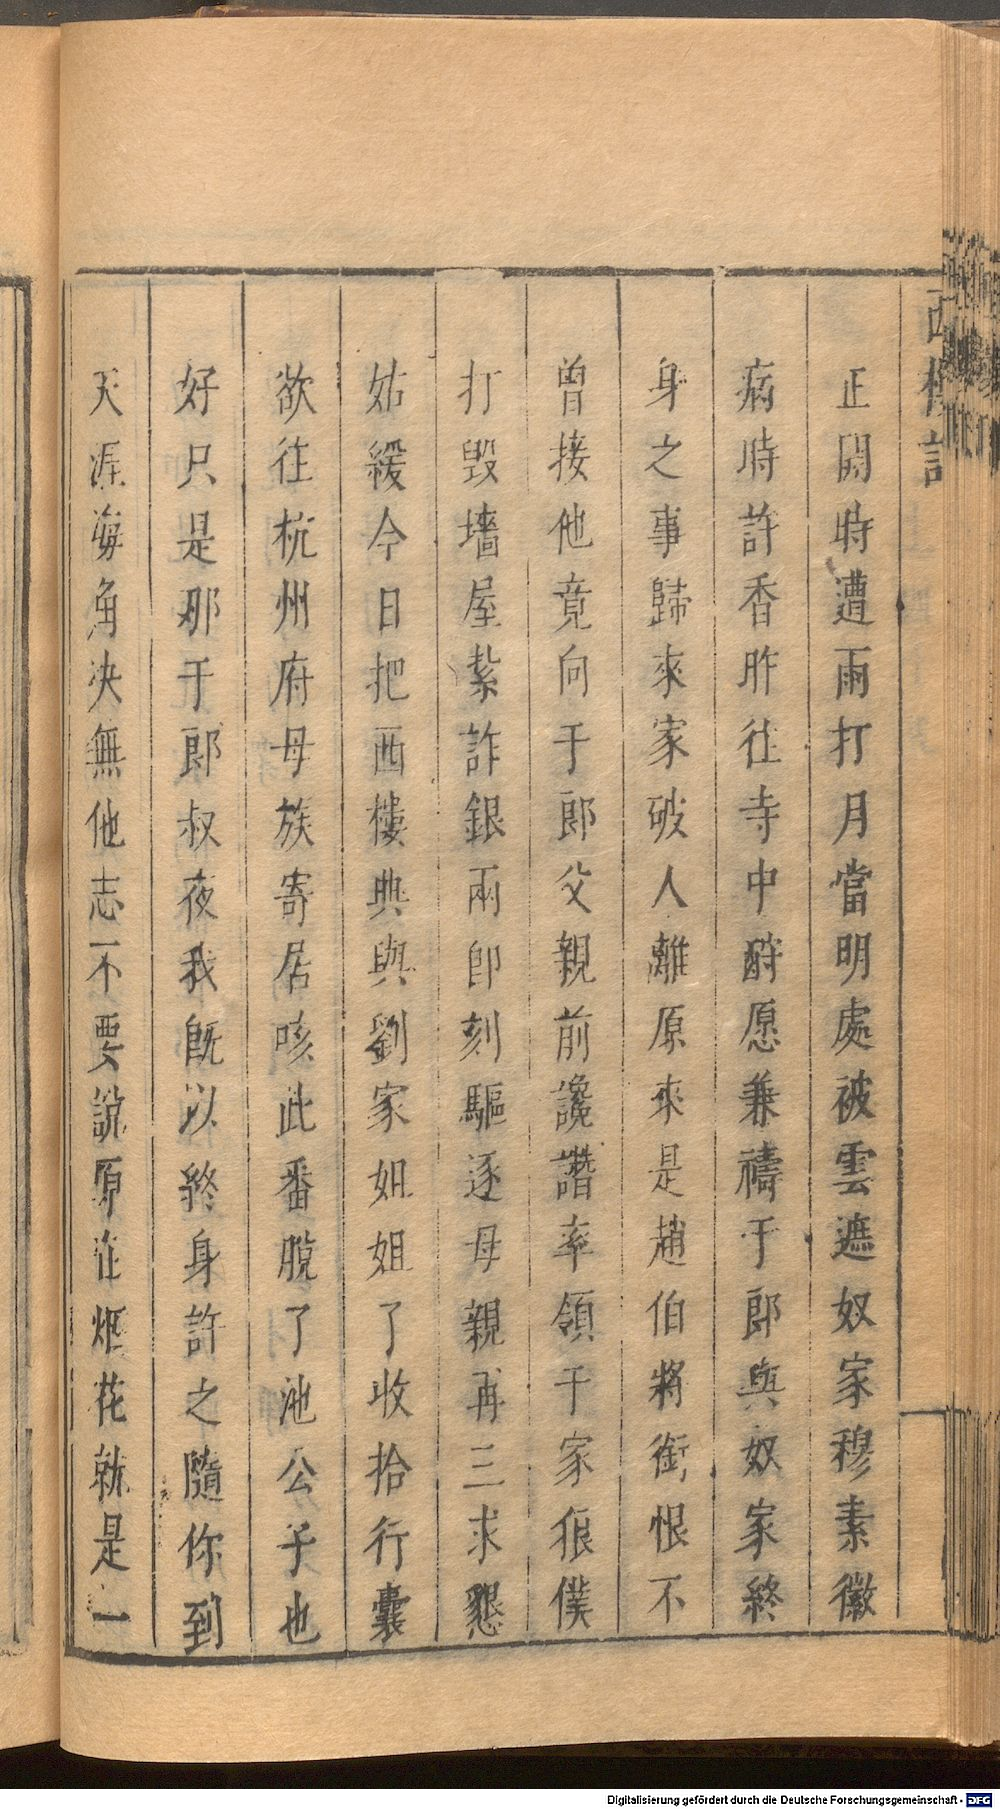 西樓記
正開時遭雨打月當明處被雲遮奴家穆素徽
病時許香昨往寺中酧愿兼禱于郎與奴家終
身之事歸來家破人離原來是趙伯將銜恨不
曾接他竟向于郎父親前讒譖率領于家狠僕
打毀墻屋紮詐銀兩即刻驅逐母親再三求懇
姑緩今日把西樓典與劉家姐姐了收拾行囊
欲往杭州府母族寄居咳此番脫了池公子也
好只是那于郎叔夜我既以終身許之隨你到
天涯海角决無他志不要說原在烟花就是一
Digitalisierung gefördert durch die Deutsche Forschungsgemeinschaft - DFG